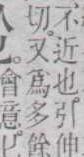 不近也引伸
切又爲多餘
也會意